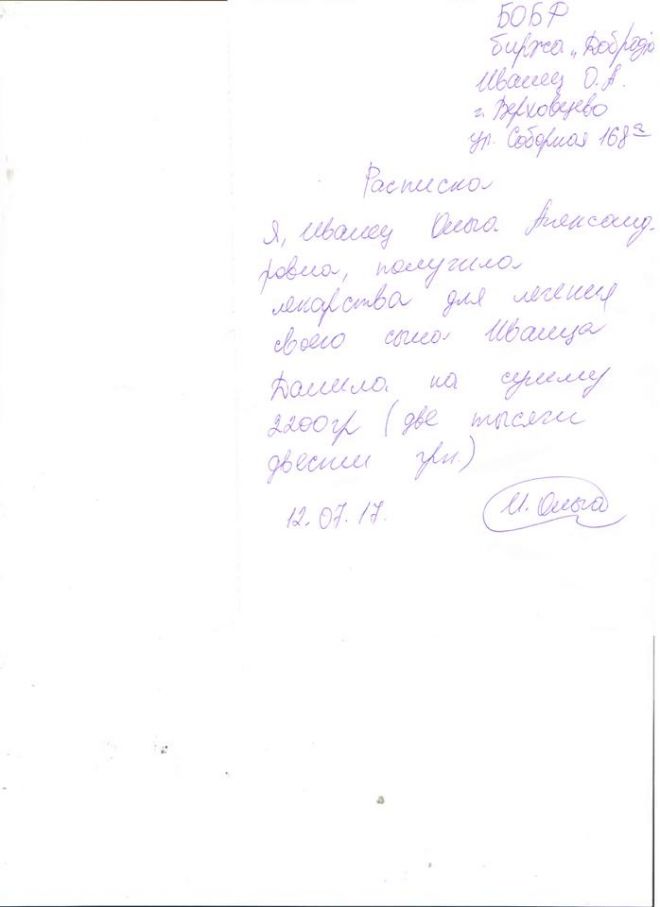 БОБФ
биржа „Добродiй
Иванец О.А.
г. Верховцево
ул. Соборная 168а
Расписка
Я, Иванец Ольга Александ-
ровна, получила
лекарства для лечения
своего сына Иванца
Данила на сумму
2200гр (две тысячи
двести грн.)
12.07.17. И. Ольга